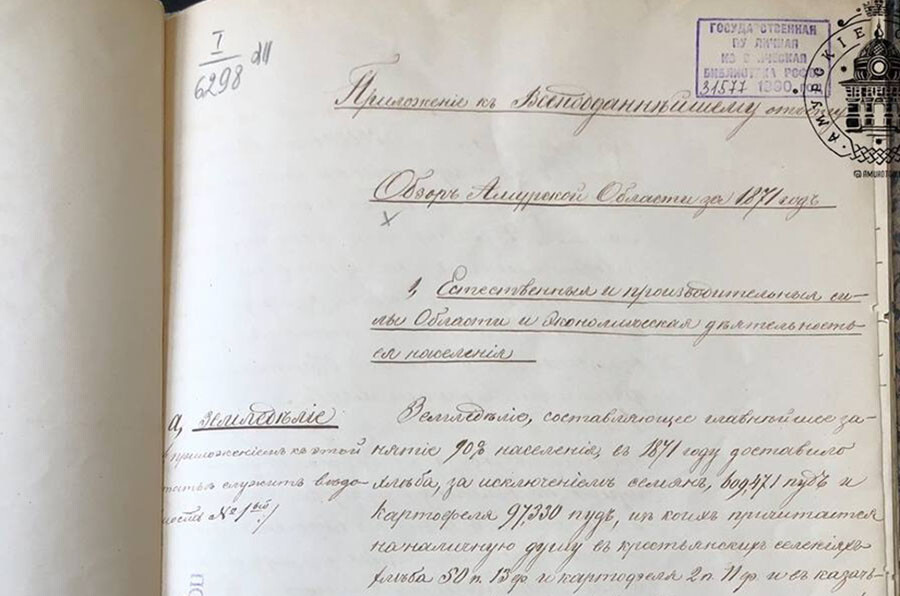 I
6298
ГОСУДАРСТВЕННАЯ
ПУБЛИЧНАЯ
ИСТОРИЧЕСКАЯ
БИБЛИОТЕКА РСФСР
31577 1960 год
АМУРСКИЕ
Приложеніе къ Всеподданнѣйшему отчету
Обзоръ Амурской Области за 1871 годъ
1, Естественныя и производительныя си-
лы Области и экономическая дѣятельность
ея населенія
а, Земледѣліе
приложеніемъ къ этой
статьѣ служитъ вѣдо-
мость № 1ый
Земледѣліе, составляющее главнѣйшее за-
нятіе 90% населенія, въ 1871 году доставило
хлѣба, за исключеніемъ сѣмянъ, 609,471 пудъ и
картофеля 97,330 пудъ, изъ коихъ причитается
на наличную душу въ крестьянскихъ селеніяхъ
хлѣба 50 п. 13 ф. и картофеля 2 п. 11 ф. и въ казачь-